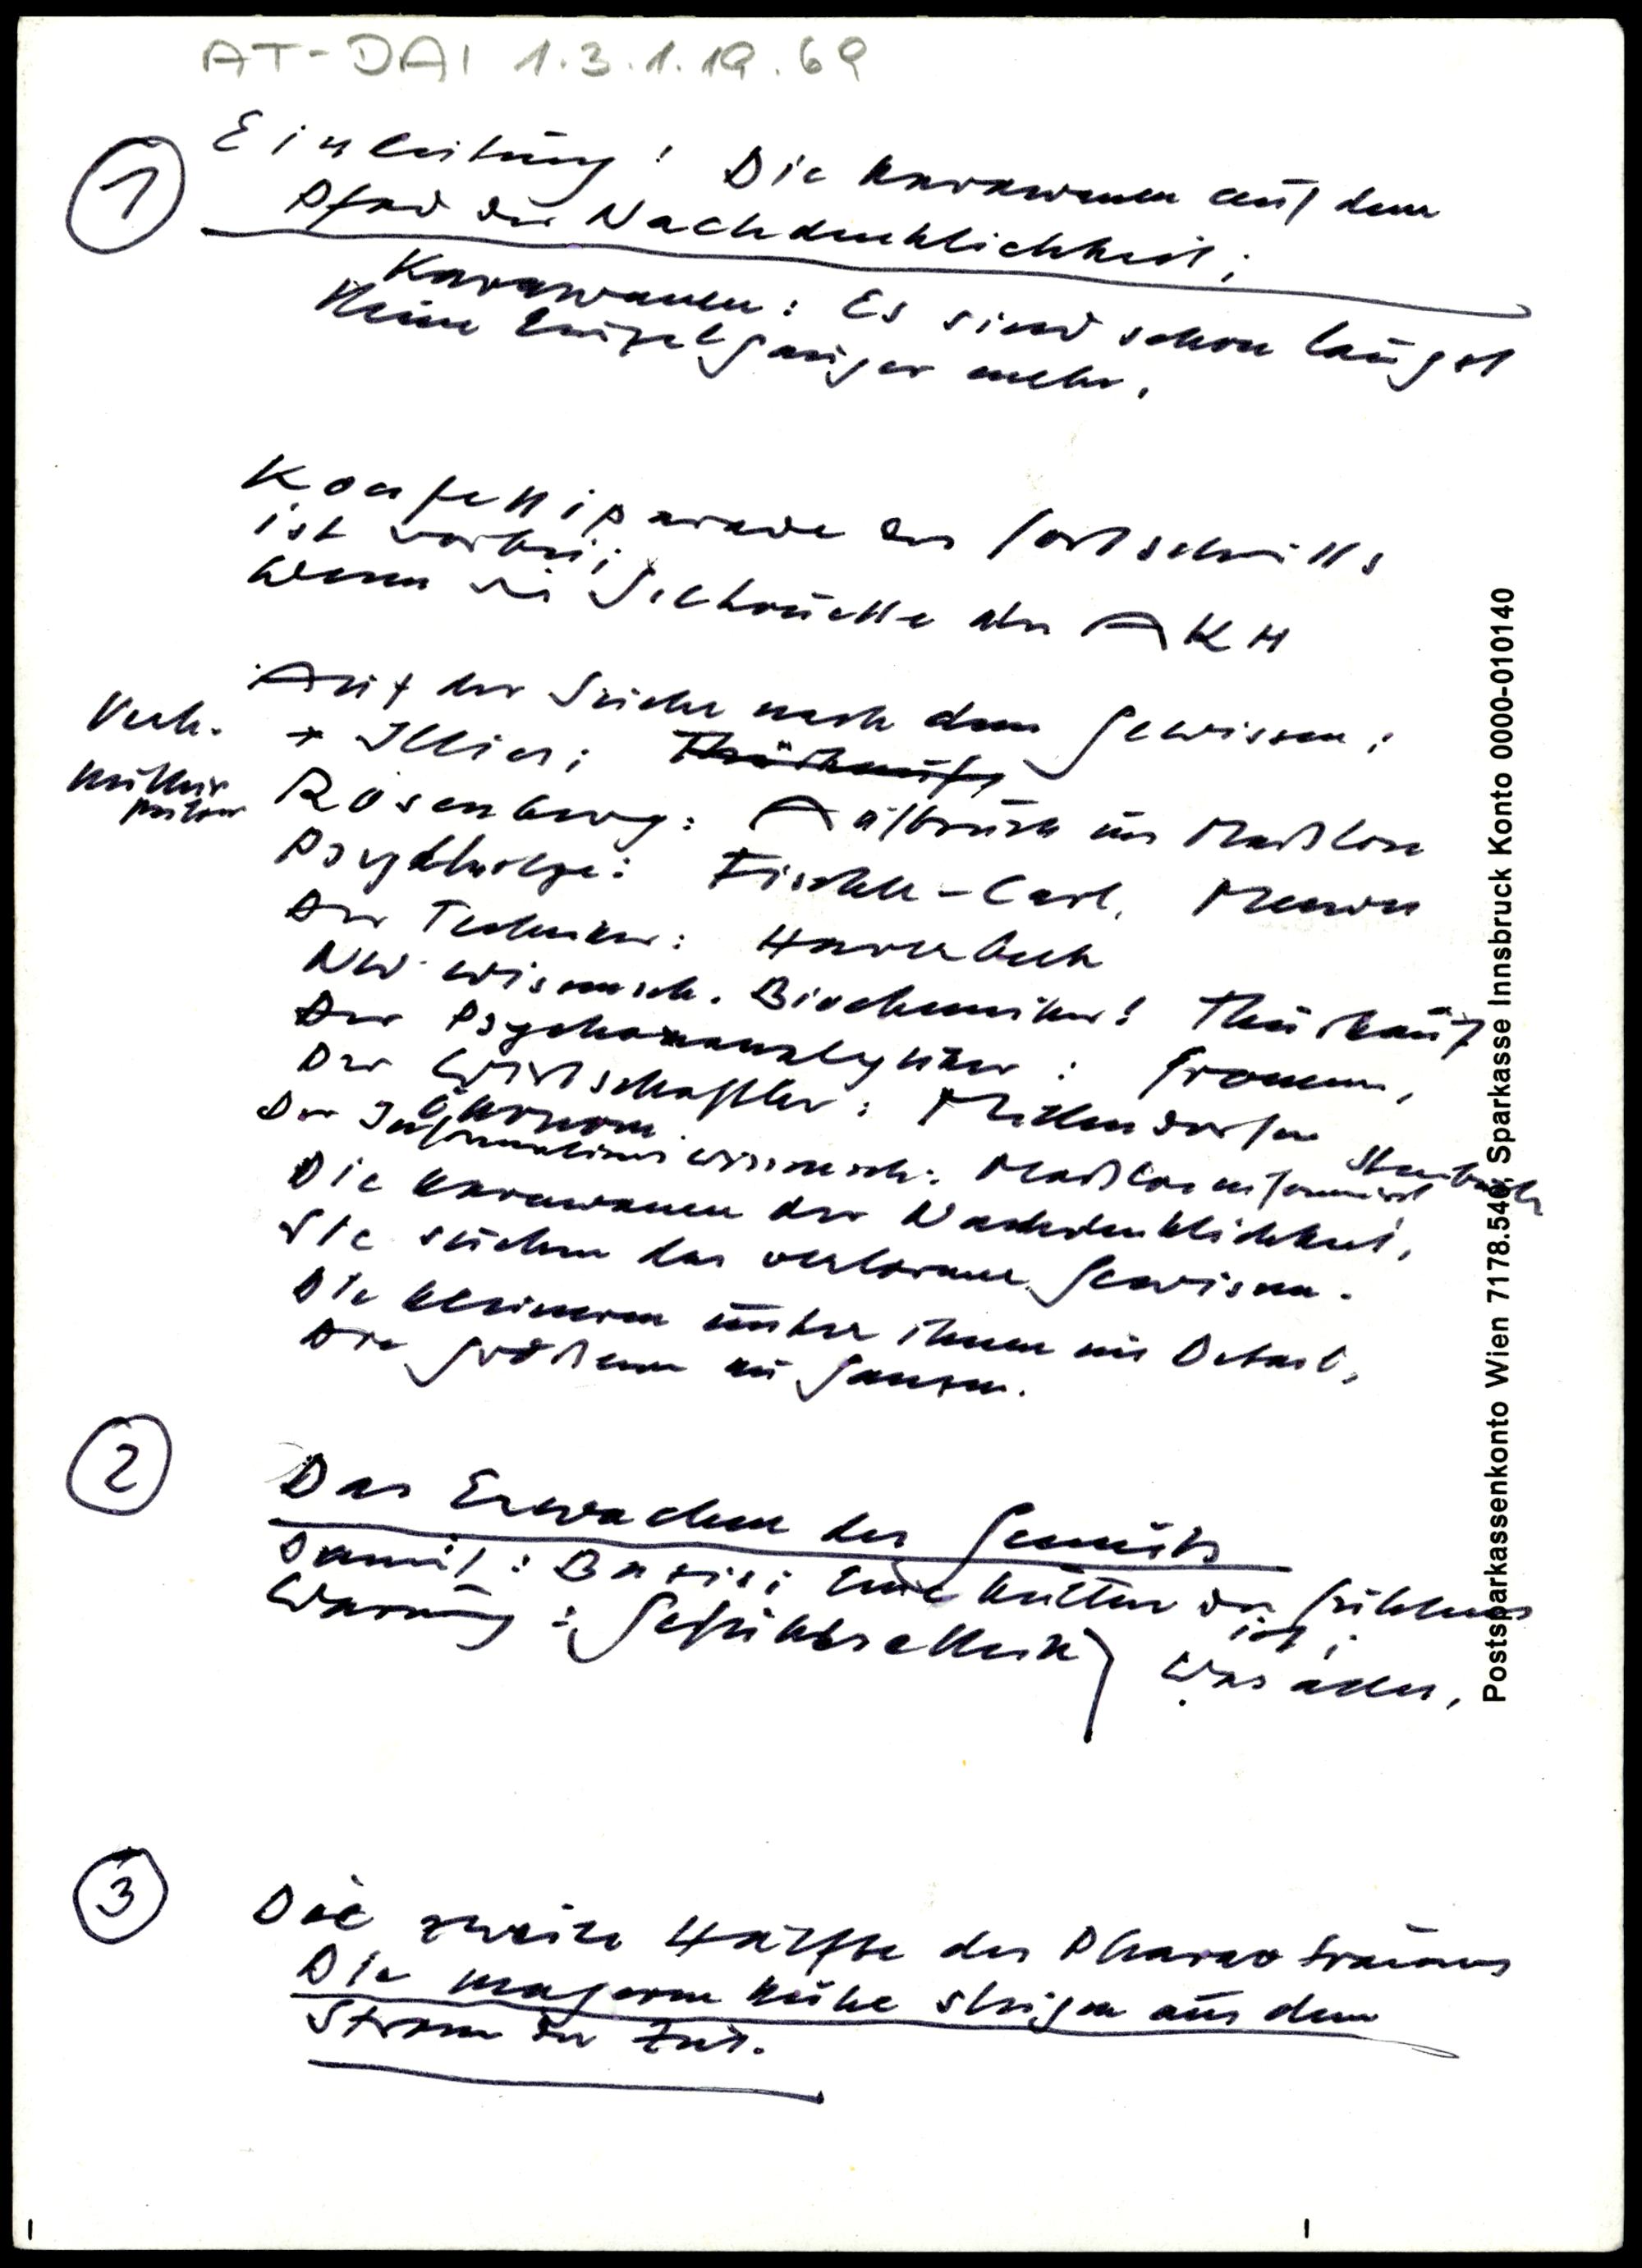 AT-DAI 1.3.1.19.69
① Einleitung: Die Karawanen auf dem
Pfad der Nachdenklichkeit;
Karawanen: Es sind schon längst
keine Einzelgänger mehr.
Konfettiparade des Fortschritts
ist vorbei;
Wenn die
des AKH
Auf der Suche nach dem Gewissen;
+ Illich; Thürkauf
Rosenberg: Aufbruch ins Maßlose
Der Techniker: Haverbeck
NW wissensch. Biochemiker: Thürkauf
Der Psychoanalytiker: Fromm,
Der Wirtschaftler:
Ökonom
Der Informationswissensch.: Maßlos informiert Steinbuch
Die Karawanen der Nachdenklichkeit,
Sie suchen das verlorene Gewissen.
Die kleineren unter ihnen im Detail,
Die größeren im Ganzen.
② Das Erwachen des Gemüts
Damit: Basis: Eine Kultur des Fühlens
Warnung:
③ Die zweite Hälfte des Pharaotraumes
Die mageren Kühe steigen aus dem
Strom der Zeit.
Postsparkassenkonto Wien 7178.540, Sparkasse Innsbruck Konto 0000-010140